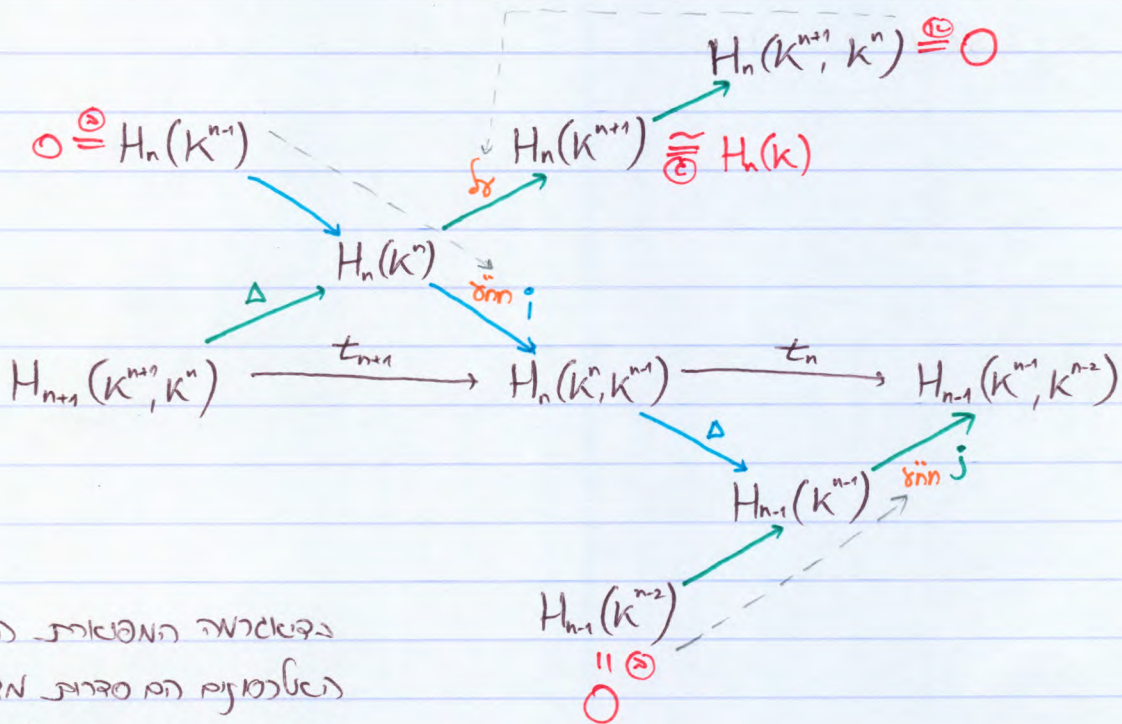 H_n(K^{n+1}, K^n) ≝(א) 0
0 =(ב) H_n(K^{n-1})
H_n(K^{n+1}) ≅(ג) H_n(K)
על
H_n(K^n)
Δ
חח"ע i
H_{n+1}(K^{n+1}, K^n) t_{n+1} H_n(K^n, K^{n-1}) t_n H_{n-1}(K^{n-1}, K^{n-2})
Δ
חח"ע j
H_{n-1}(K^{n-1})
H_{n-1}(K^{n-2})
בדיאגרמה המפוארת
האלכסונים הם סדרות
=(ב)
0